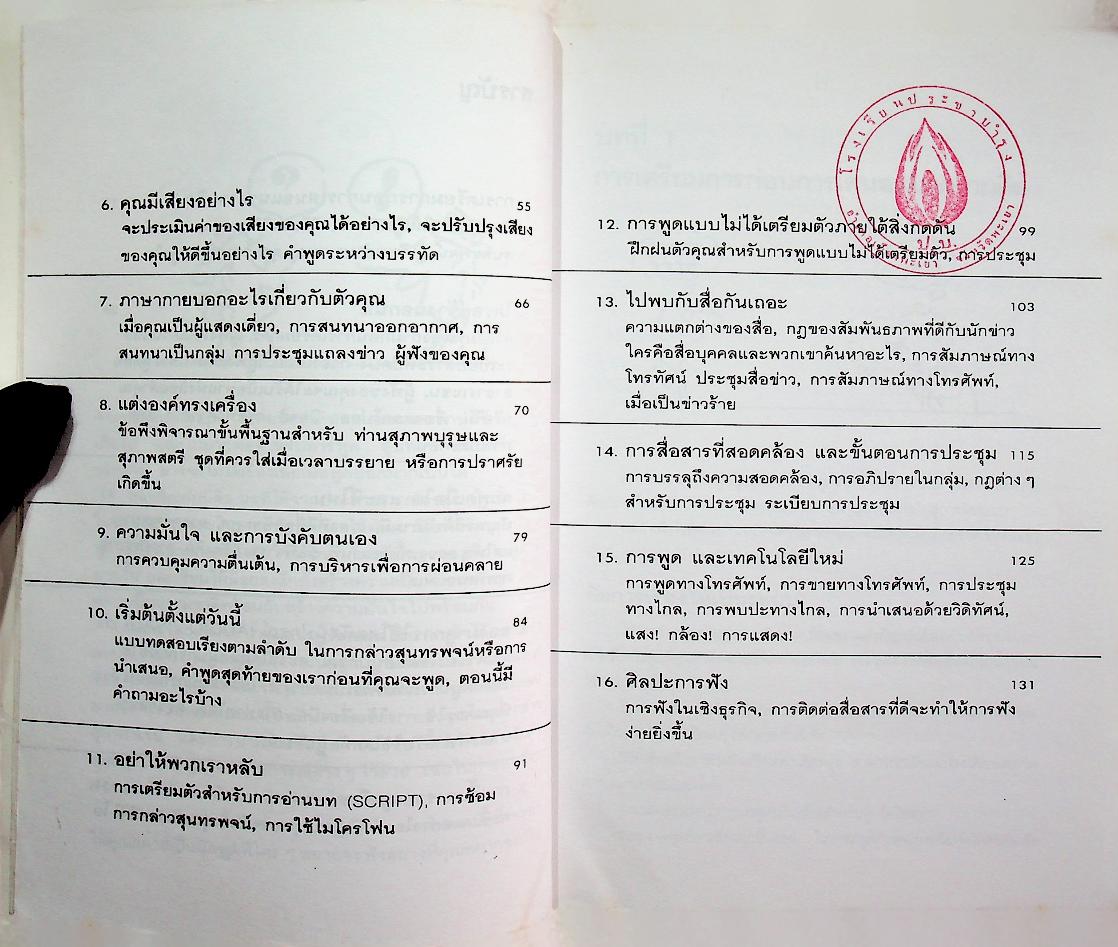 6. คุณมีเสียงอย่างไร 55
จะประเมินค่าของเสียงของคุณได้อย่างไร, จะปรับปรุงเสียง
ของคุณให้ดีขึ้นอย่างไร คำพูดระหว่างบรรทัด
7. ภาษากายบอกอะไรเกี่ยวกับตัวคุณ 66
เมื่อคุณเป็นผู้แสดงเดี่ยว, การสนทนาออกอากาศ, การ
สนทนาเป็นกลุ่ม การประชุมแถลงข่าว ผู้ฟังของคุณ
8. แต่งองค์ทรงเครื่อง 70
ข้อพึงพิจารณาขั้นพื้นฐานสำหรับ ท่านสุภาพบุรุษและ
สุภาพสตรี ชุดที่ควรใส่เมื่อเวลาบรรยาย หรือการปราศรัย
เกิดขึ้น
9. ความมั่นใจ และการบังคับตนเอง 79
การควบคุมความตื่นเต้น, การบริหารเพื่อการผ่อนคลาย
10. เริ่มต้นตั้งแต่วันนี้ 84
แบบทดสอบเรียงตามลำดับ ในการกล่าวสุนทรพจน์หรือการ
นำเสนอ, คำพูดสุดท้ายของเราก่อนที่คุณจะพูด, ตอนนี้มี
คำถามอะไรบ้าง
11. อย่าให้พวกเราหลับ 91
การเตรียมตัวสำหรับการอ่านบท (SCRIPT), การซ้อม
การกล่าวสุนทรพจน์, การใช้ไมโครโฟน
โรงเรียนประชาบำรุง
ป.บ.
12. การพูดแบบไม่ได้เตรียมตัวภายใต้สิ่งกดดัน 99
ฝึกฝนตัวคุณสำหรับการพูดแบบไม่ได้เตรียมตัว, การประชุม
13. ไปพบกับสื่อกันเถอะ 103
ความแตกต่างของสื่อ, กฎของสัมพันธภาพที่ดีกับนักข่าว
ใครคือสื่อบุคคลและพวกเขาค้นหาอะไร, การสัมภาษณ์ทาง
โทรทัศน์ ประชุมสื่อข่าว, การสัมภาษณ์ทางโทรศัพท์,
เมื่อเป็นข่าวร้าย
14. การสื่อสารที่สอดคล้อง และขั้นตอนการประชุม 115
การบรรลุถึงความสอดคล้อง, การอภิปรายในกลุ่ม, กฎต่าง ๆ
สำหรับการประชุม ระเบียบการประชุม
15. การพูด และเทคโนโลยีใหม่ 125
การพูดทางโทรศัพท์, การขายทางโทรศัพท์, การประชุม
ทางไกล, การพบปะทางไกล, การนำเสนอด้วยวิดิทัศน์,
แสง! กล้อง! การแสดง!
16. ศิลปะการฟัง 131
การฟังในเชิงธุรกิจ, การติดต่อสื่อสารที่ดีจะทำให้การฟัง
ง่ายยิ่งขึ้น